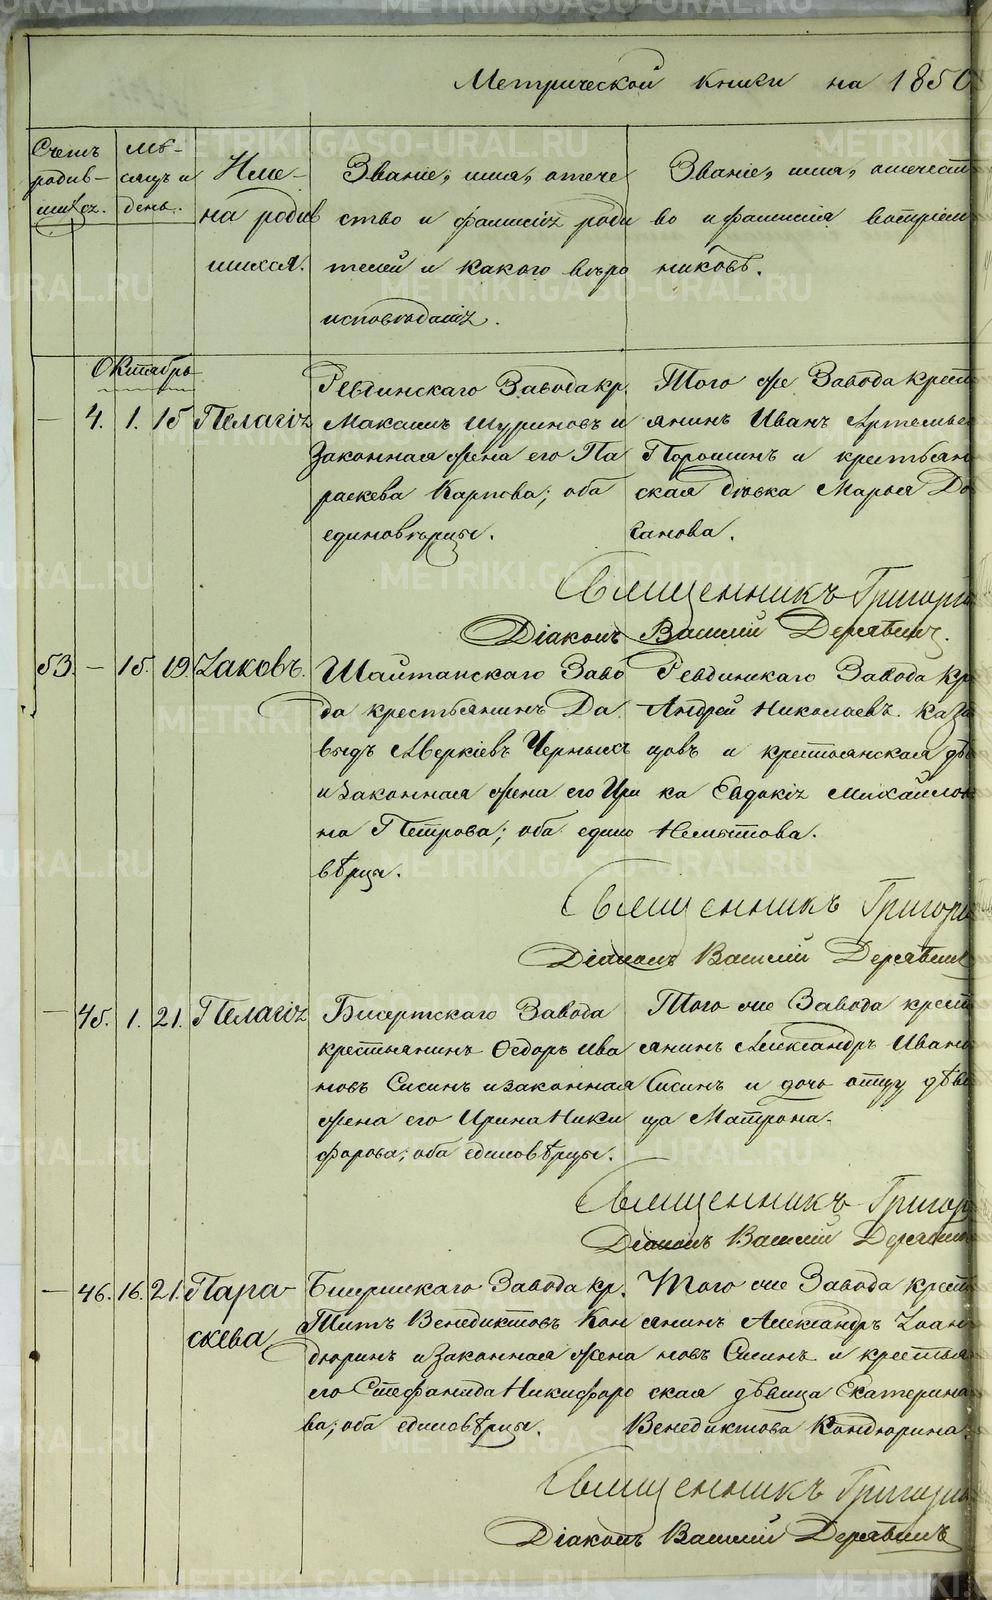 Метрической книги на 1850
Счетъ родив- шихся.
Мѣ- сяцъ и день.
Име- на родив шихся.
Званіе, имя, отече ство и фамилія роди телей и какого вѣро исповѣданія.
Званіе, имя, отечест во и фамилія воспріем никовъ.
Октябрь
— 4. 1. 15 Пелагія
Ревдинскаго Завода кр.
Максимъ Шуриновъ и
Законная жена его Па
раскева Карпова; оба
единовѣрцы.
Того же Завода крест
янинъ Иванъ Артемьев
Порошинъ и крестьян
ская дѣвка Марья До
санова.
Священникъ Григорі
Діаконъ Василій Дерябинъ.
53. — 15. 19. Іаковъ.
Шайтанскаго Заво
да крестьянинъ Да
выдъ Аверкіевъ Черныхъ
и законная жена его Ири
на Петрова; оба едино
вѣрцы.
Ревдинскаго Завода кр
Андрей Николаевъ Каза
цовъ и крестьянская дѣв
ка Евдокія Михайлов
Немытова.
Священникъ Григорі
Діаконъ Василій Дерябинъ
— 45. 1. 21. Пелагія
Бисертскаго Завода
крестьянинъ Ѳедоръ Ива
новъ Сисинъ и законная
жена его Ирина Ники
форова; оба единовѣрцы.
Того же Завода крест
янинъ Александръ Ивано
Сисинъ и дочь отцу дѣви
ца Матрона.
Священникъ Григор
Діаконъ Василій Дерябинъ
— 46. 16. 21. Пара-
скева
Бисертскаго Завода кр.
Титъ Венедиктовъ Кон
дюринъ и законная жена
его Стефанида Никифоро
ва; оба единовѣрцы.
Того же Завода крест
янинъ Александръ Іоан
новъ Сисинъ и крестья
ская дѣвица Екатерина
Венедиктова Кондюрина.
Священникъ Григорі
Діаконъ Василій Дерябинъ
METRIKI.GASO-URAL.RU